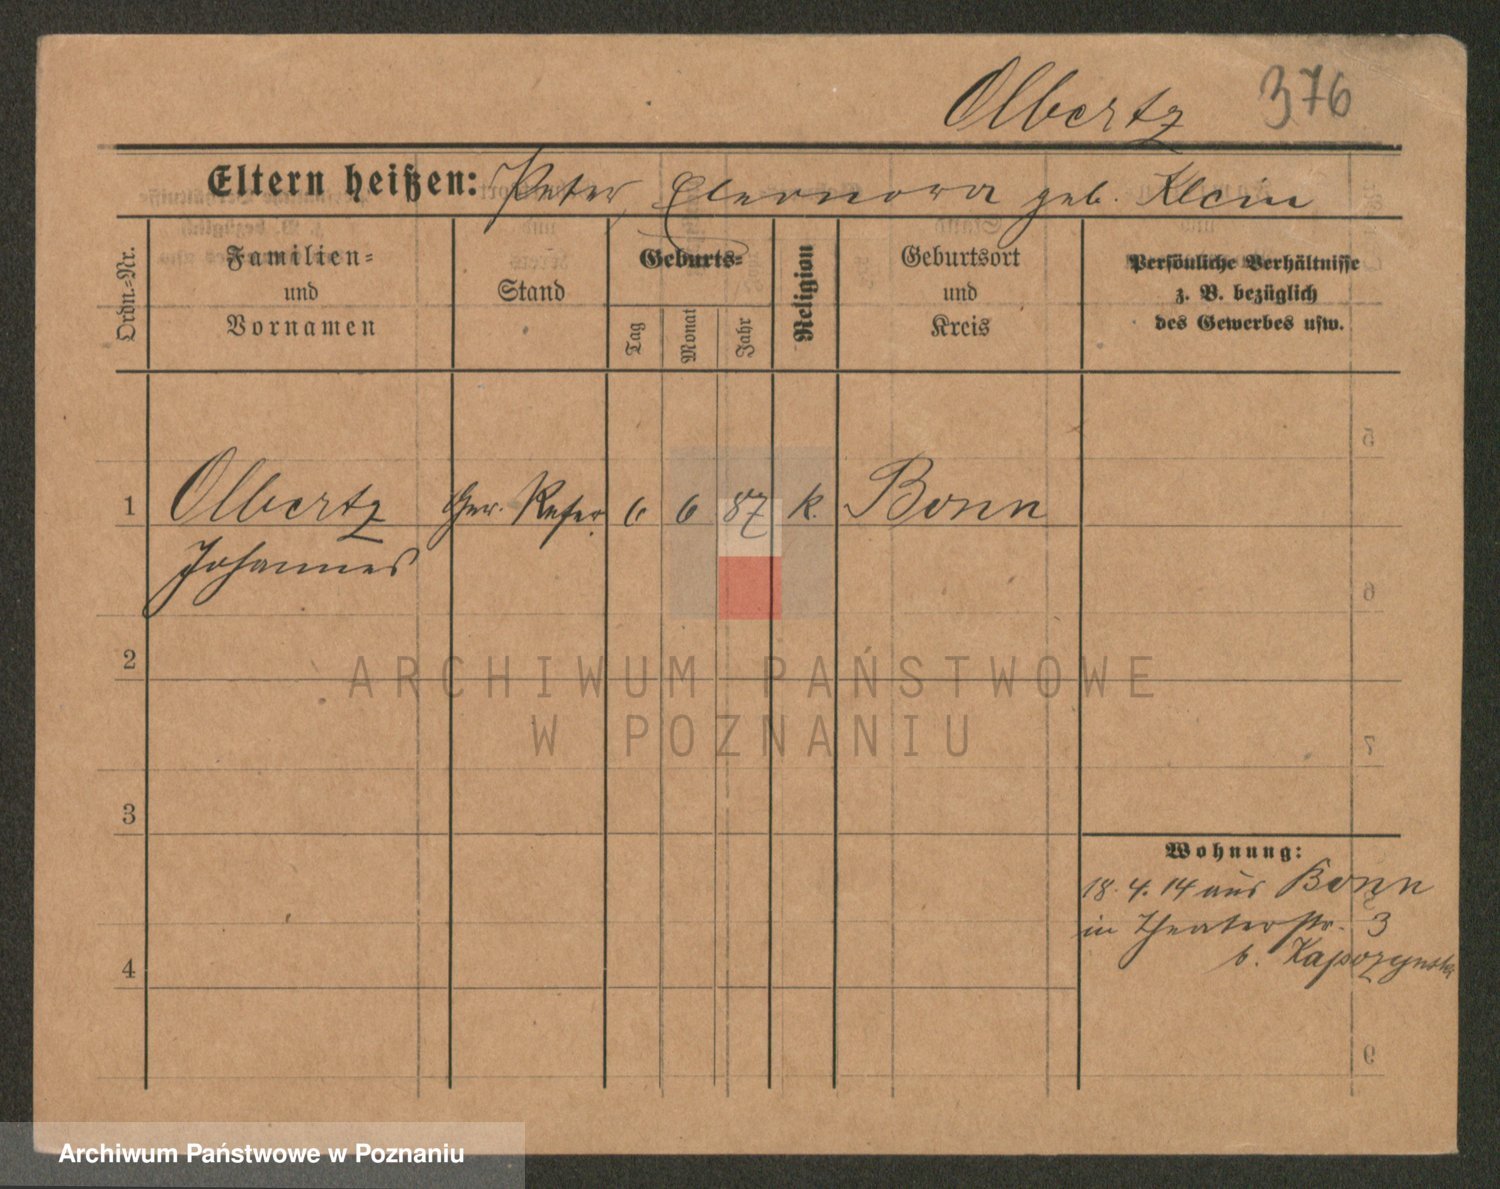 Olbertz 376
Eltern heißen: Peter, Eleonora geb. Klein
Ordn.-Nr.
Familien-
und
Vornamen
Stand
Geburts-
Tag
Monat
Jahr
Religion
Geburtsort
und
Kreis
Persönliche Verhältnisse
z. B. bezüglich
des Gewerbes usw.
1 Olbertz Ger. Refer. 6 6 87 k. Bonn
Johannes
2
ARCHIWUM PAŃSTWOWE
W POZNANIU
3
Wohnung:
18. 4. 14 aus Bonn
in Theaterstr. 3
4
b.
Archiwum Państwowe w Poznaniu